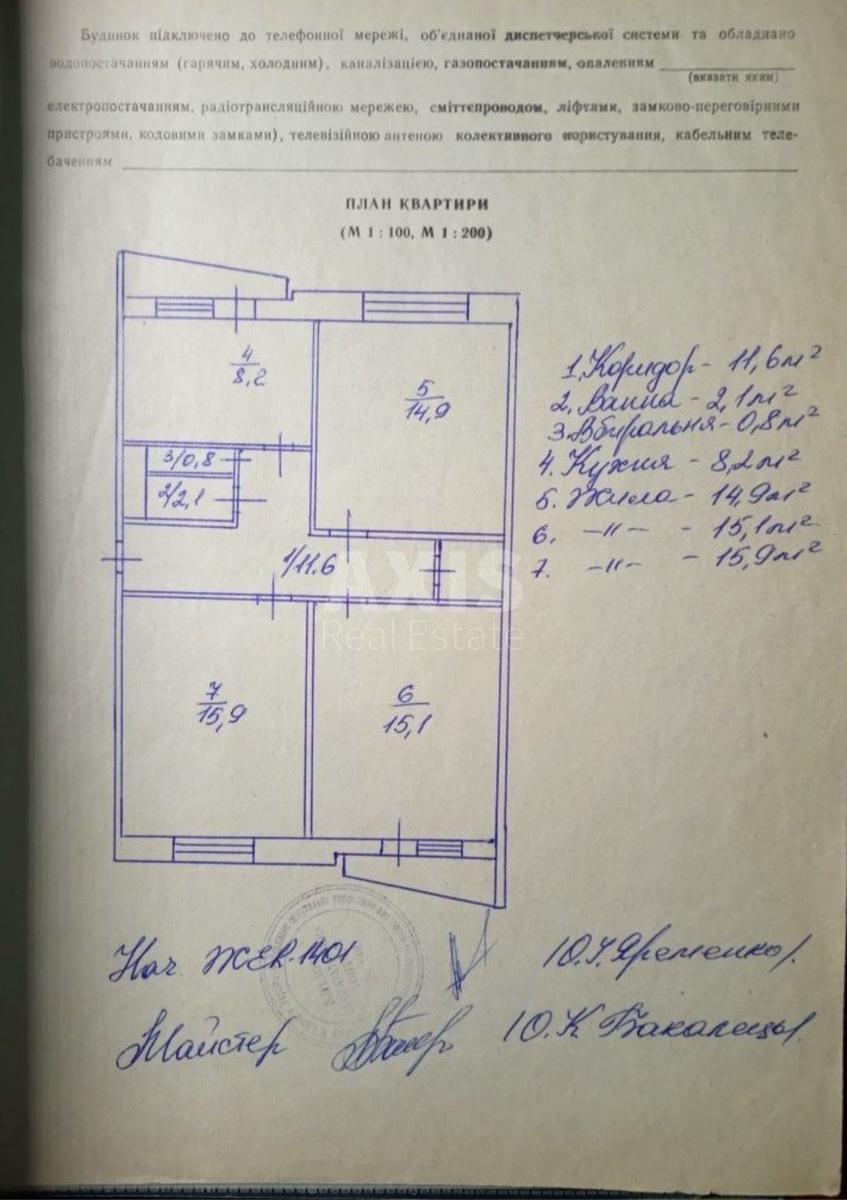 Будинок підключено до телефонної мережі, об'єднаної диспетчерської системи та обладнано
водопостачанням (гарячим, холодним), каналізацією, газопостачанням, опаленням
(вказати яким)
електропостачанням, радіотрансляційною мережею, сміттєпроводом, ліфтами, замково-переговірними
пристроями, кодовими замками), телевізійною антеною колективного користування, кабельним теле-
баченням
ПЛАН КВАРТИРИ
(М 1 : 100, М 1 : 200)
1. Коридор - 11,6 м²
2. Ванна - 2,1 м²
3. Вбиральня - 0,8 м²
4. Кухня - 8,2 м²
5. Жила - 14,9 м²
6. -"- - 15,1 м²
7. -"- - 15,9 м²
4
8,2
5
14,9
3/0,8
2/2,1
1/11.6
AXIS
Real Estate
7
15,9
6
15,1
Нач. ЖЕК-1401 Ю.І.Яременко
Майстер Ю.К.